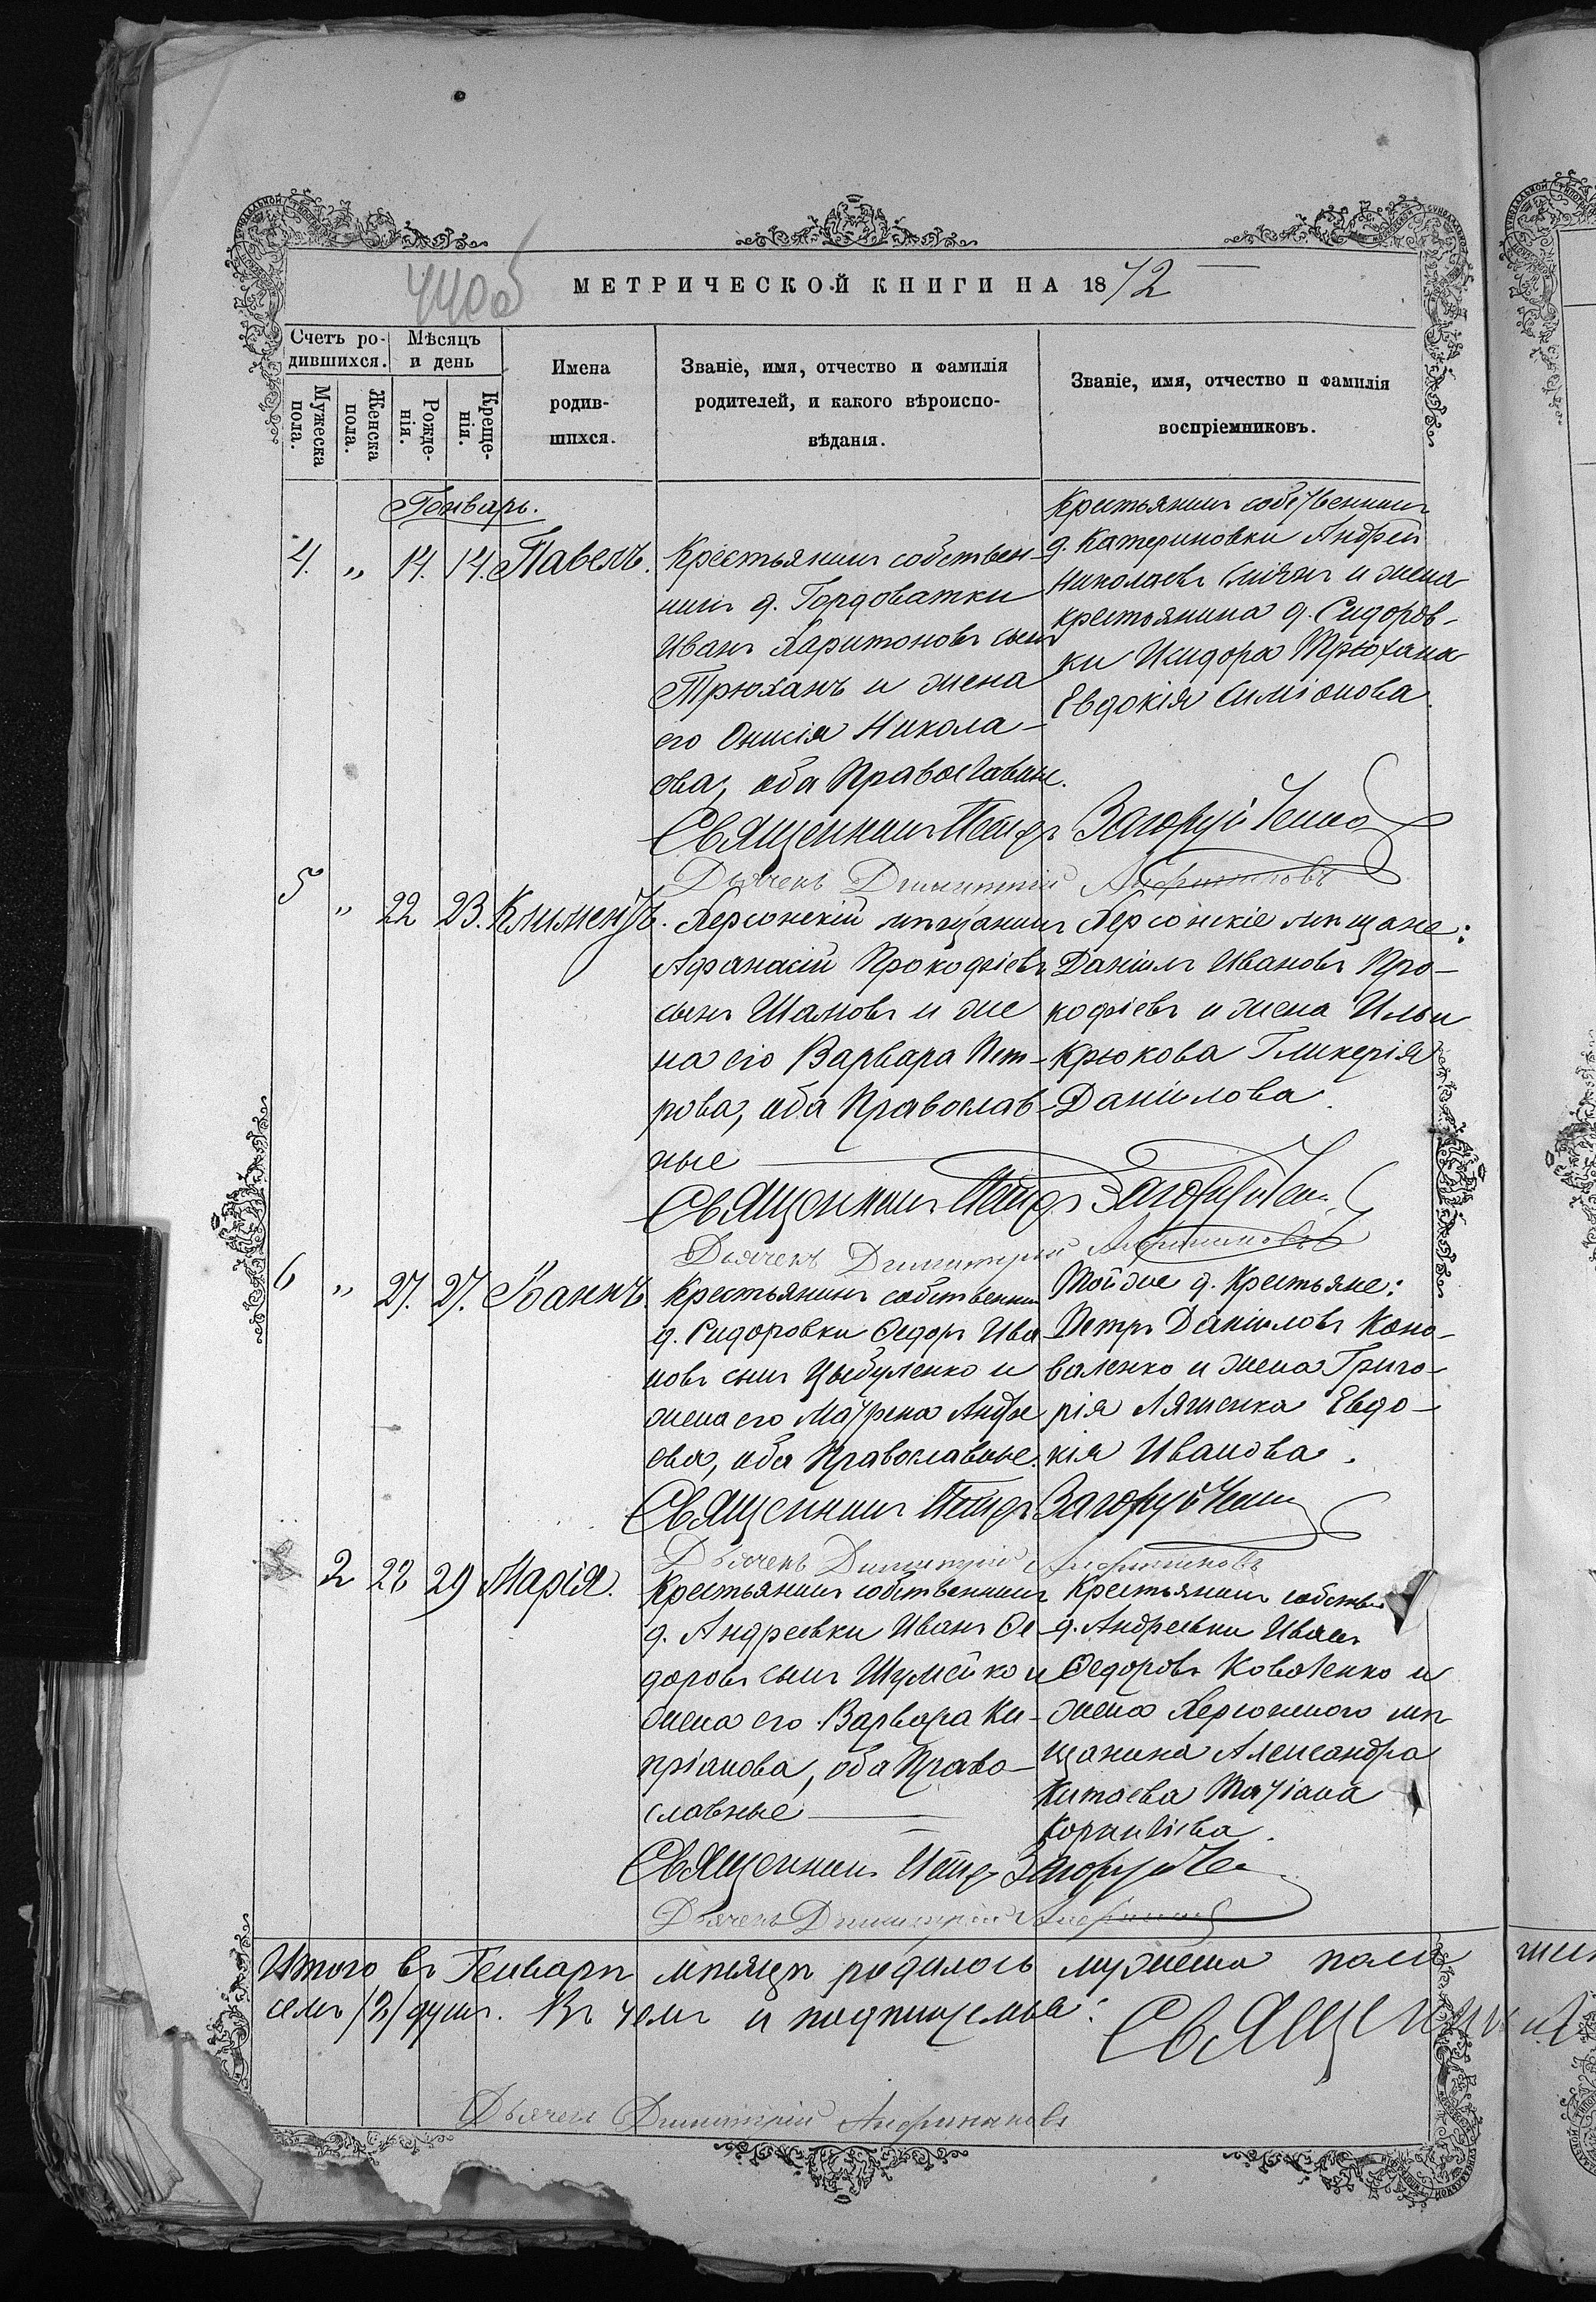 440об
МЕТРИЧЕСКОЙ КНИГИ НА 1872
Счетъ ро-
дившихся.
Мѣсяцъ
и день
Мужеска
пола.
Женска
пола.
Рожде-
нія.
Креще-
нія.
Имена
родив-
шихся.
Званіе, имя, отчество и фамилія
родителей, и какого вѣроиспо-
вѣданія.
Званіе, имя, отчество и фамилія
воспріемниковъ.
Генварь.
4. „ 14. 14. Павелъ.
Крестьянинъ собствен-
никъ д. Гордоватки
Иванъ Харитоновъ сынъ
Трюханъ и жена
его Онисія Никола-
ева, оба Православные.
Крестьянинъ собственникъ
д. Катериновки Андрей
Николаевъ и жена
крестьянина д. Сидоров-
ки Исидора Трюхана
Евдокія Симіонова.
Священникъ Петръ Загоруйченко
Дьячекъ Димитрій
5 „ 22 23. Климентъ.
Херсонскій мѣщанинъ
Афанасій Прокофіевъ
сынъ Шамовъ и же
на его Варвара Пет-
рова, оба Православ-
ные
Херсонскіе мѣщане:
Даніилъ Ивановъ Про-
кофіевъ и жена Ильи
Крюкова Гликерія
Даніилова.
Священникъ Петръ Загоруйчен.
Дьячекъ Димитрій
6 „ 27. 27. Іоаннъ.
Крестьянинъ собственни
д. Сидоровки Ѳедоръ Ива
новъ сынъ Цыбуленко и
жена его Матрена Андре
ева, оба Православные.
Той же д. Крестьяне:
Петръ Даніиловъ Коно-
валенко и жена Григо-
рія Ляшенка Евдо-
кія Иванова.
Священникъ Петръ Загоруйченк
Дьячекъ Димитрій
2 28 29 Марія.
Крестьянинъ собственникъ
д. Андреевки Иванъ Ѳе-
доровъ сынъ Шумейко и
жена его Варвара Ки-
пріанова, оба Право-
славные
Крестьянинъ собстве
д. Андреевки Иванъ
Ѳедоровъ Коваленко и
жена Херсонского мѣ
щанина Александра
Китаева Татіана
Корниліева.
Священникъ Петръ Загоруйче
Дьячекъ Димитрій
Итого въ Генварѣ мѣсяцѣ родилось мужеска пола
душъ. Въ чемъ и подпишемся: Священникъ
Дьячекъ Димитрій